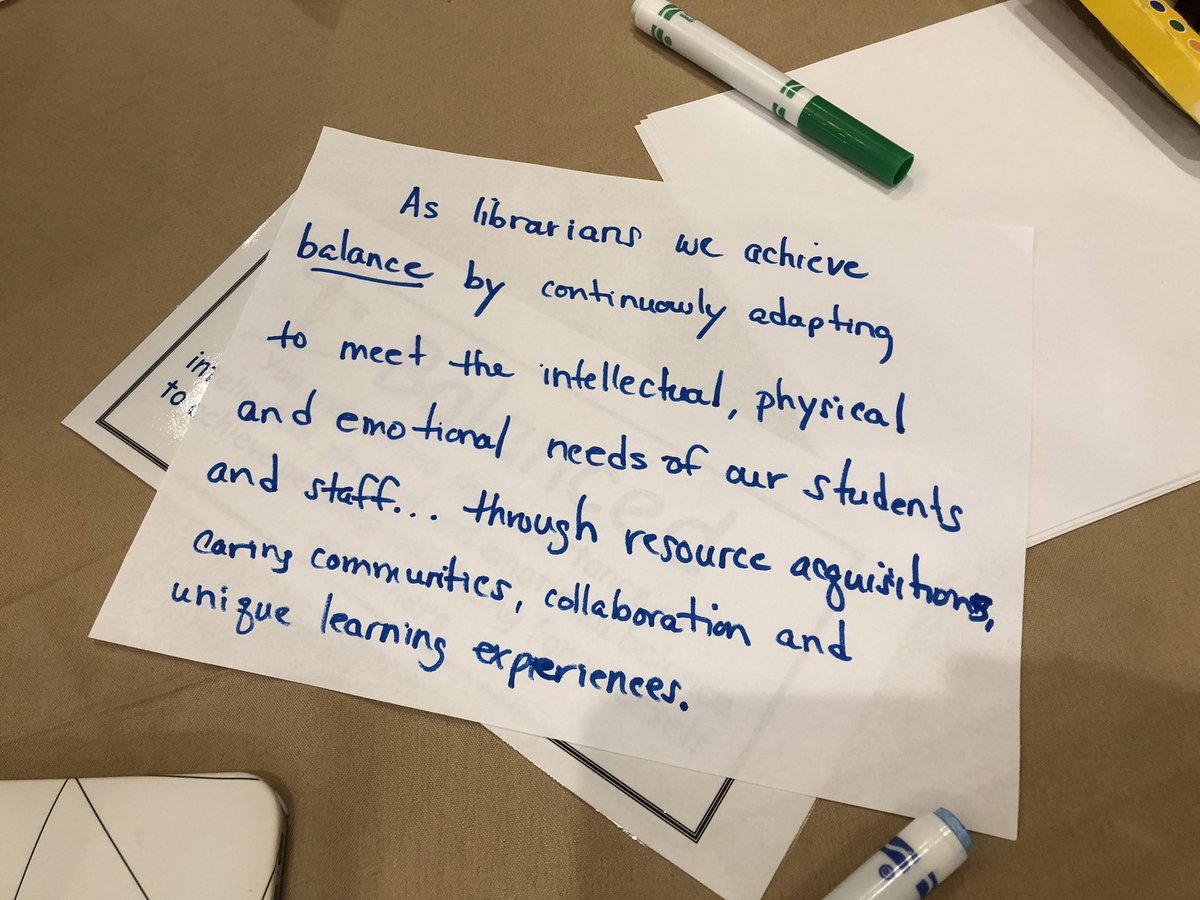 As librarians we achieve
balance by continuously adapting
to meet the intellectual, physical
and emotional needs of our students
and staff... through resource acquisitions,
caring communities, collaboration and
unique learning experiences.
to
balanced